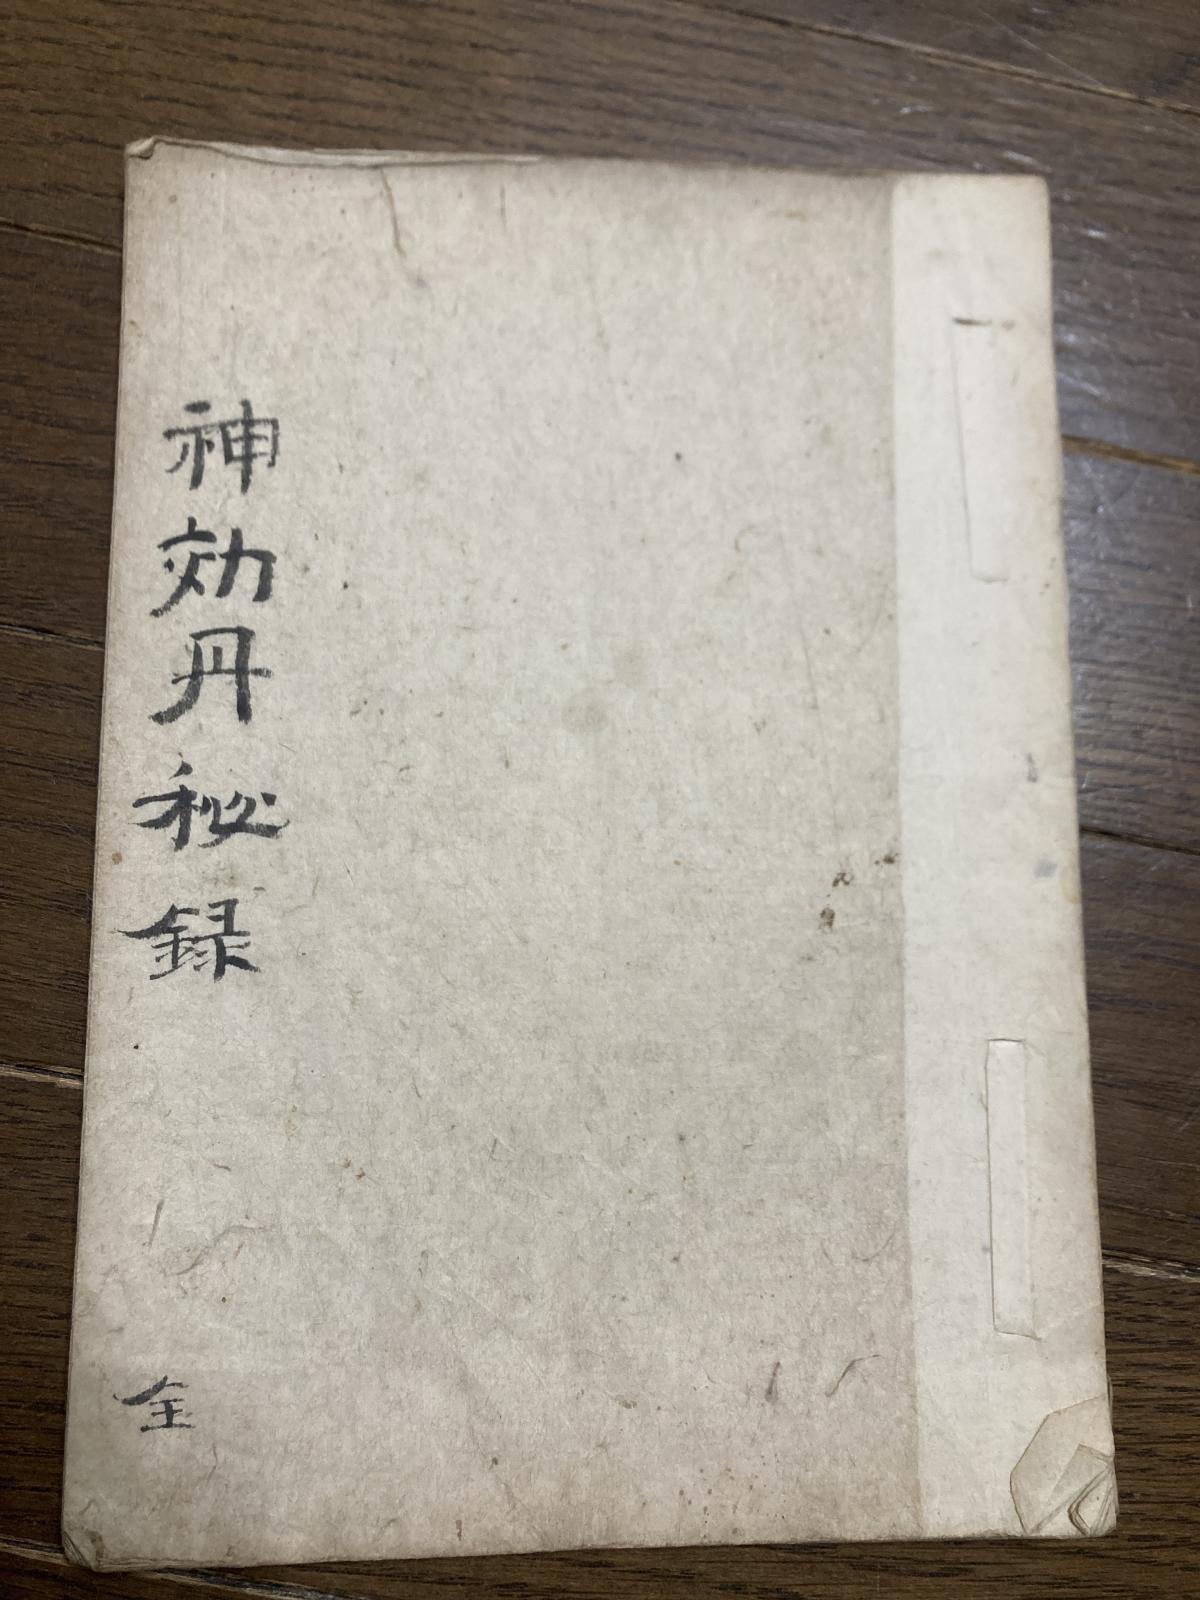 神効丹秘録
全